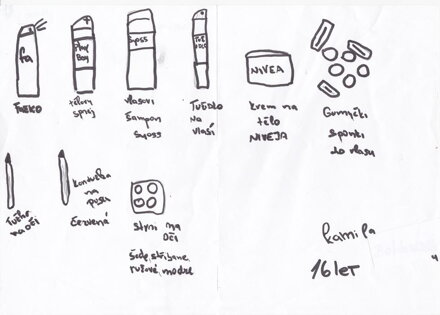 fa
Play
Boy
Syoss
NIVEA
tělovi
sprej
vlasoví
šampon
Syoss
Tužidlo
na
vlasi
krem na
tělo
NIVEJA
Gumički
sponki
do vlasu
na oči
konturka
na
pusu
červená
stíni na
oči
růžové, modré
kamila
16 let